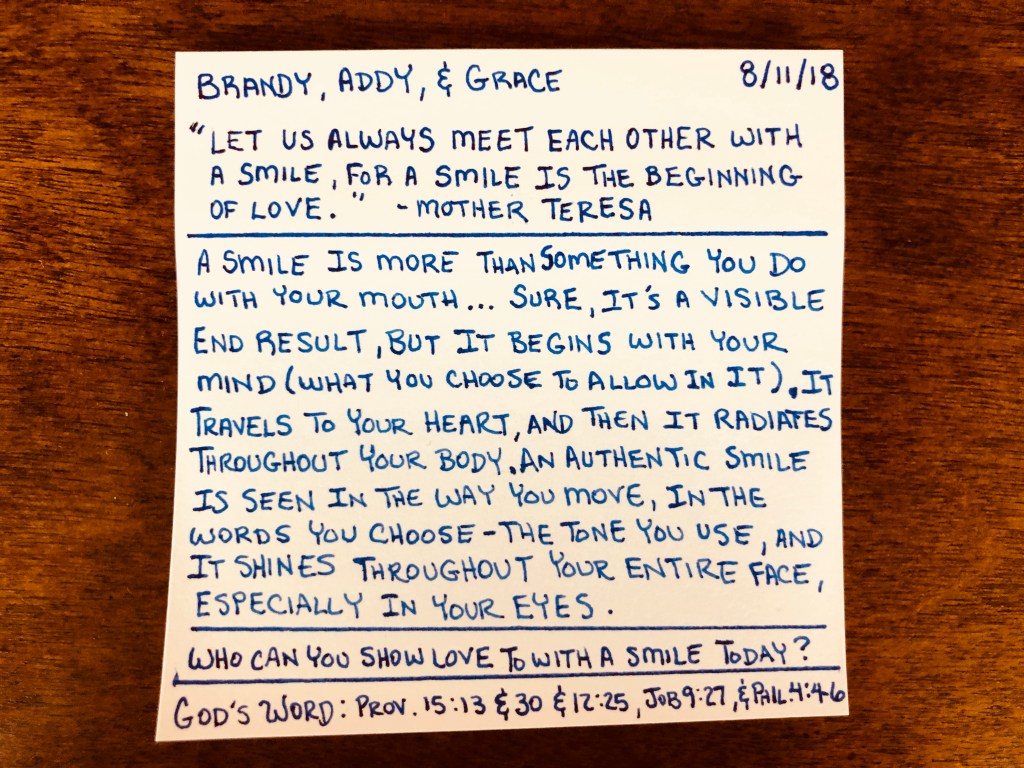 BRANDY, ADDY, & GRACE 8/11/18
"LET US ALWAYS MEET EACH OTHER WITH
A SMILE, FOR A SMILE IS THE BEGINNING
OF LOVE." - MOTHER TERESA
A SMILE IS MORE THAN SOMETHING YOU DO
WITH YOUR MOUTH... SURE, IT'S A VISIBLE
END RESULT, BUT IT BEGINS WITH YOUR
MIND (WHAT YOU CHOOSE TO ALLOW IN IT). IT
TRAVELS TO YOUR HEART, AND THEN IT RADIATES
THROUGHOUT YOUR BODY. AN AUTHENTIC SMILE
IS SEEN IN THE WAY YOU MOVE, IN THE
WORDS YOU CHOOSE - THE TONE YOU USE, AND
IT SHINES THROUGHOUT YOUR ENTIRE FACE,
ESPECIALLY IN YOUR EYES.
WHO CAN YOU SHOW LOVE TO WITH A SMILE TODAY?
GOD'S WORD: PROV. 15:13 & 30 & 12:25, JOB 9:27, & PHIL. 4:4-6